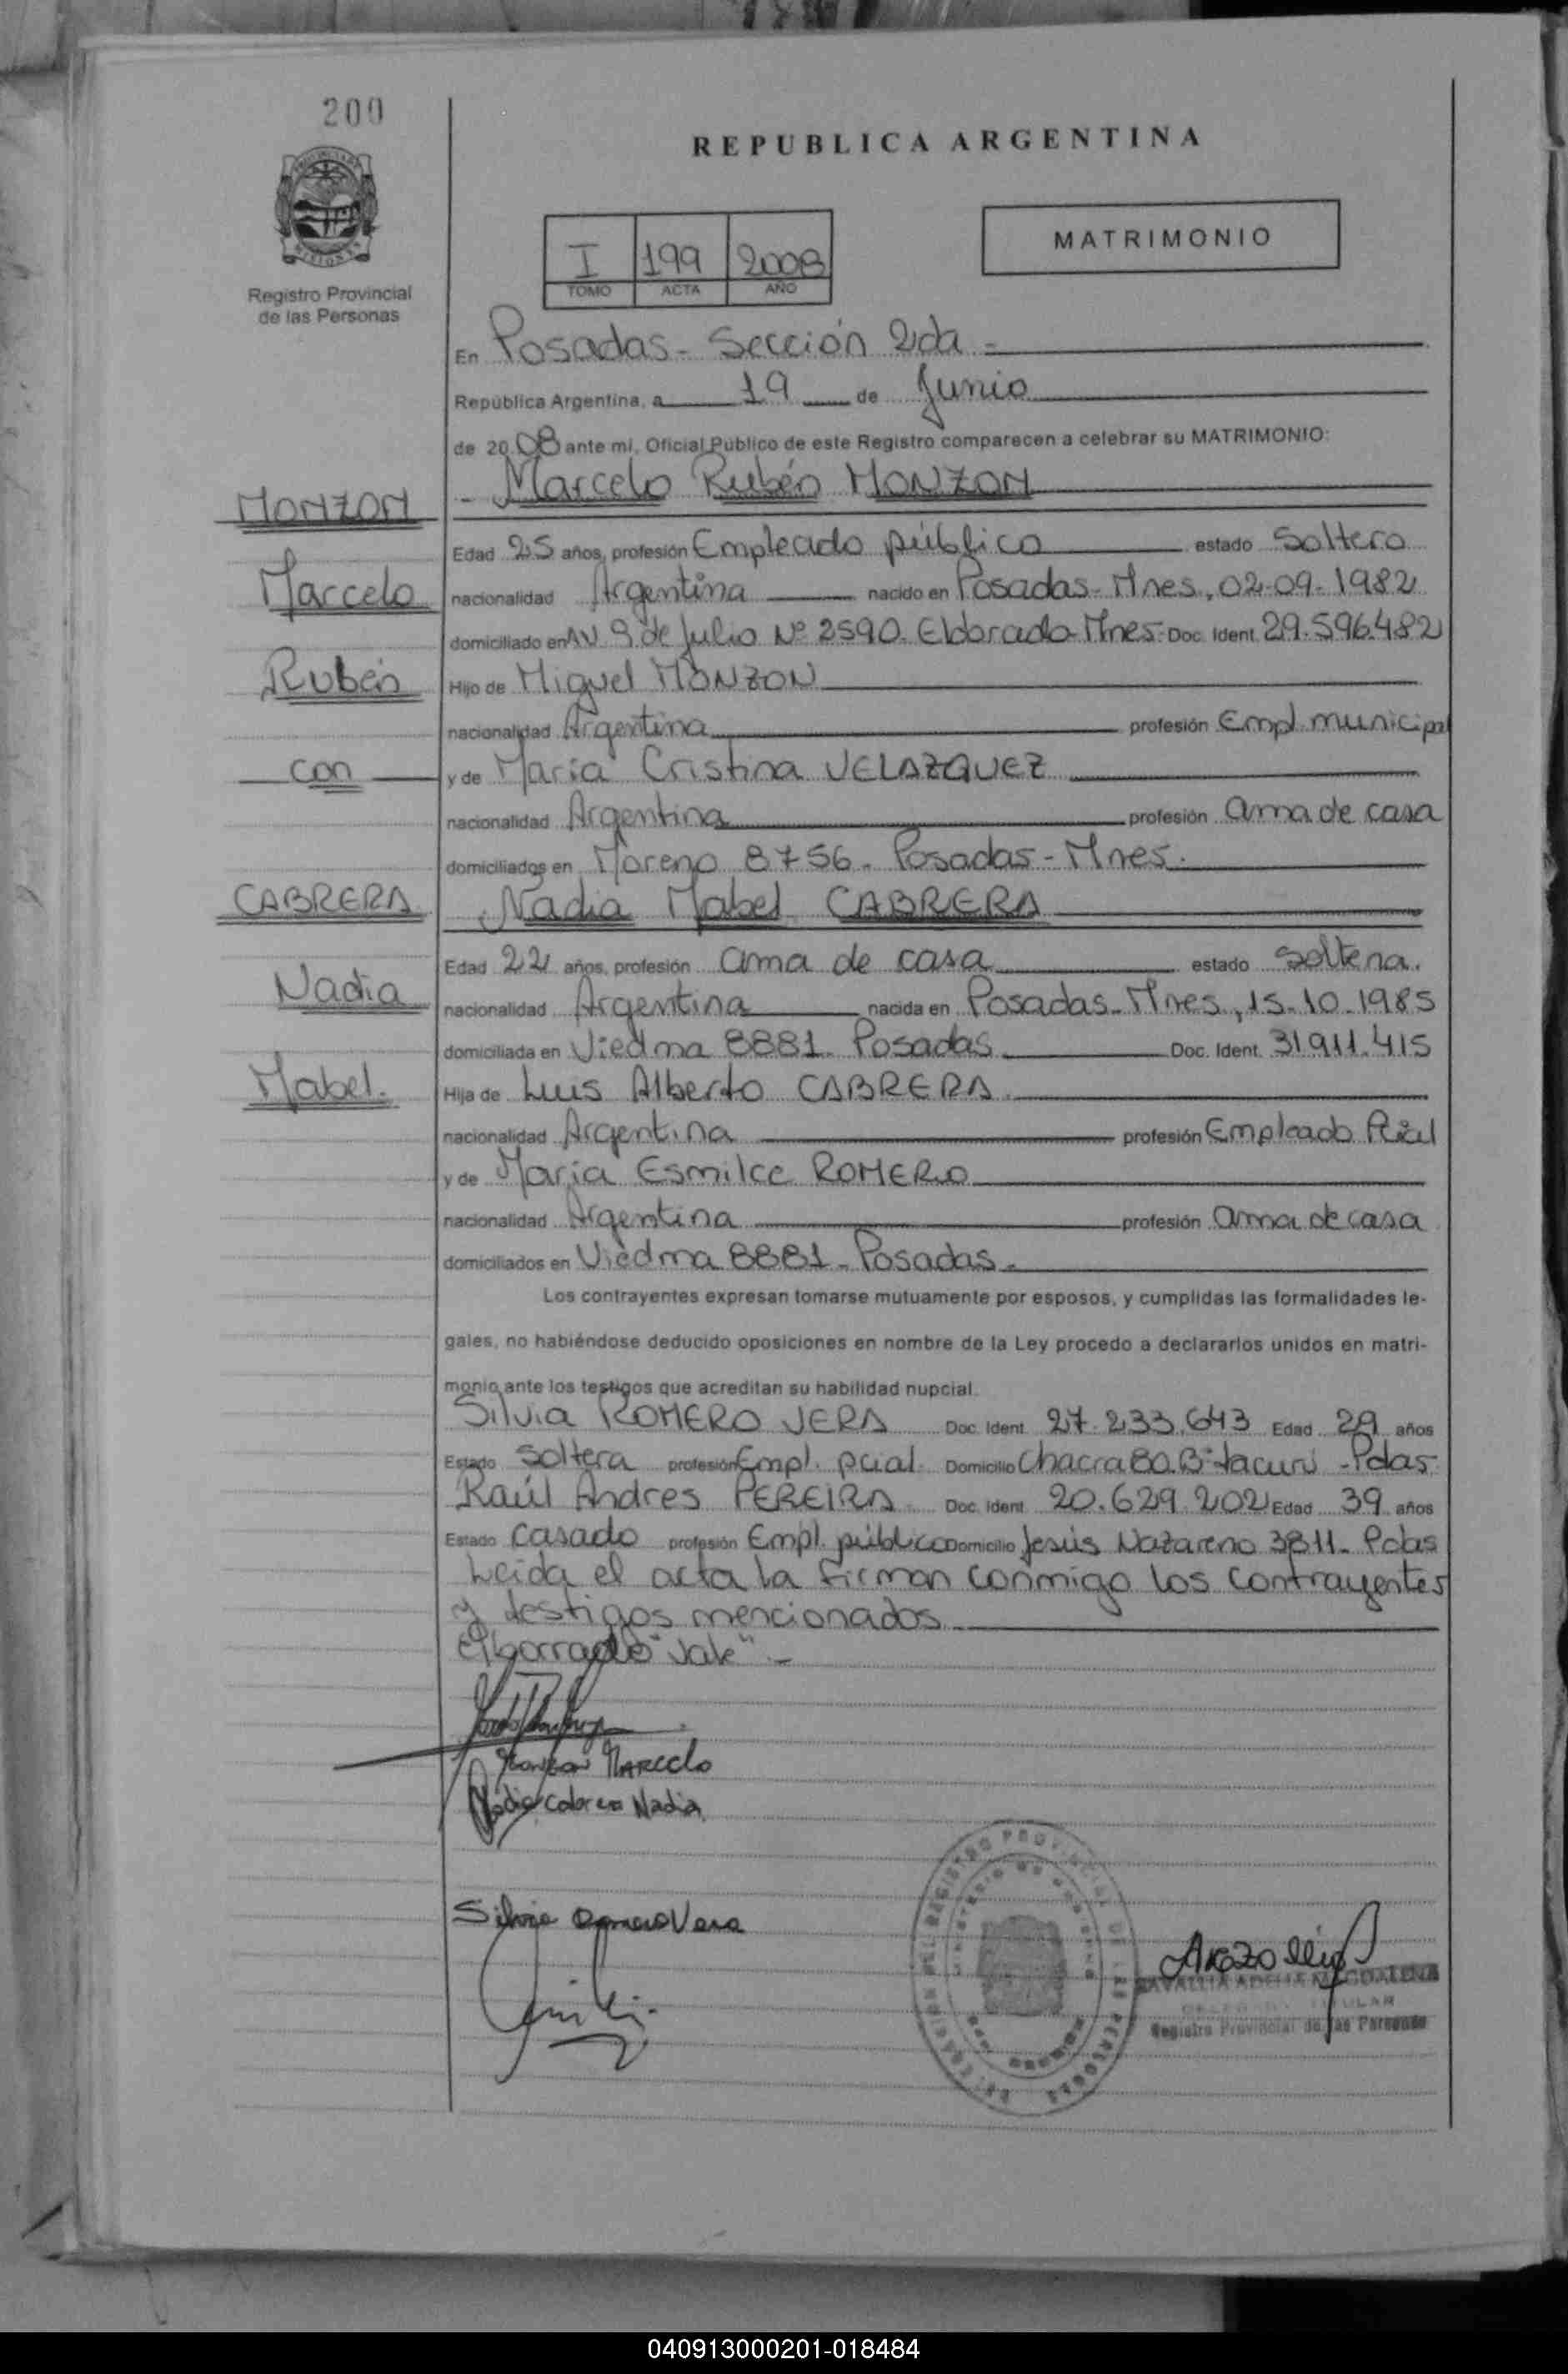 200
REPUBLICA ARGENTINA
MATRIMONIO
I 199 2008
TOMO ACTA AÑO
Registro Provincial
de las Personas
En Posadas - Sección 2da -
República Argentina, a 19 de Junio
de 2008 ante mí, Oficial Público de este Registro comparecen a celebrar su MATRIMONIO:
MONZON
- Marcelo Rubén MONZON
Edad 25 años, profesión Empleado público estado Soltero
Marcelo
nacionalidad Argentina nacido en Posadas - Mnes, 02-09-1982
domiciliado en Av. 9 de Julio Nº 2590. Eldorado-Mnes- Doc. Ident. 29.596.482
Rubén
Hijo de Miguel MONZON
nacionalidad Argentina profesión Empl. municipal
con
y de María Cristina VELAZQUEZ
nacionalidad Argentina profesión ama de casa
domiciliados en Moreno 8756 - Posadas - Mnes.
CABRERA
Nadia Mabel CABRERA
Edad 22 años, profesión ama de casa estado soltera.
Nadia
nacionalidad Argentina nacida en Posadas - Mnes, 15-10-1985
domiciliada en Viedma 8881 - Posadas Doc. Ident. 31.911.415
Mabel.
Hija de Luis Alberto CABRERA.
nacionalidad Argentina profesión Empleado Pcial
y de María Esmilce ROMERO
nacionalidad Argentina profesión ama de casa
domiciliados en Viedma 8881 - Posadas -
Los contrayentes expresan tomarse mutuamente por esposos, y cumplidas las formalidades le-
gales, no habiéndose deducido oposiciones en nombre de la Ley procedo a declararlos unidos en matri-
monio ante los testigos que acreditan su habilidad nupcial.
Silvia ROMERO VERA Doc. Ident. 27.233.643 Edad 29 años
Estado Soltera profesión Empl. pcial. Domicilio Chacra 80. Bº Yacuri - Pdas
Raúl Andres PEREIRA Doc. Ident. 20.629.202 Edad 39 años
Estado Casado profesión Empl. público Domicilio Jesús Nazareno 3811 - Pdas
Leida el acta la firman conmigo los contrayentes
y testigos mencionados
El borrado "Vale" -
Monzon Marcelo
Nadia Cabrera Nadia
Silvia Romero Vera
MAGDALENA
TITULAR
Registro Provincial de las Personas
040913000201-018484